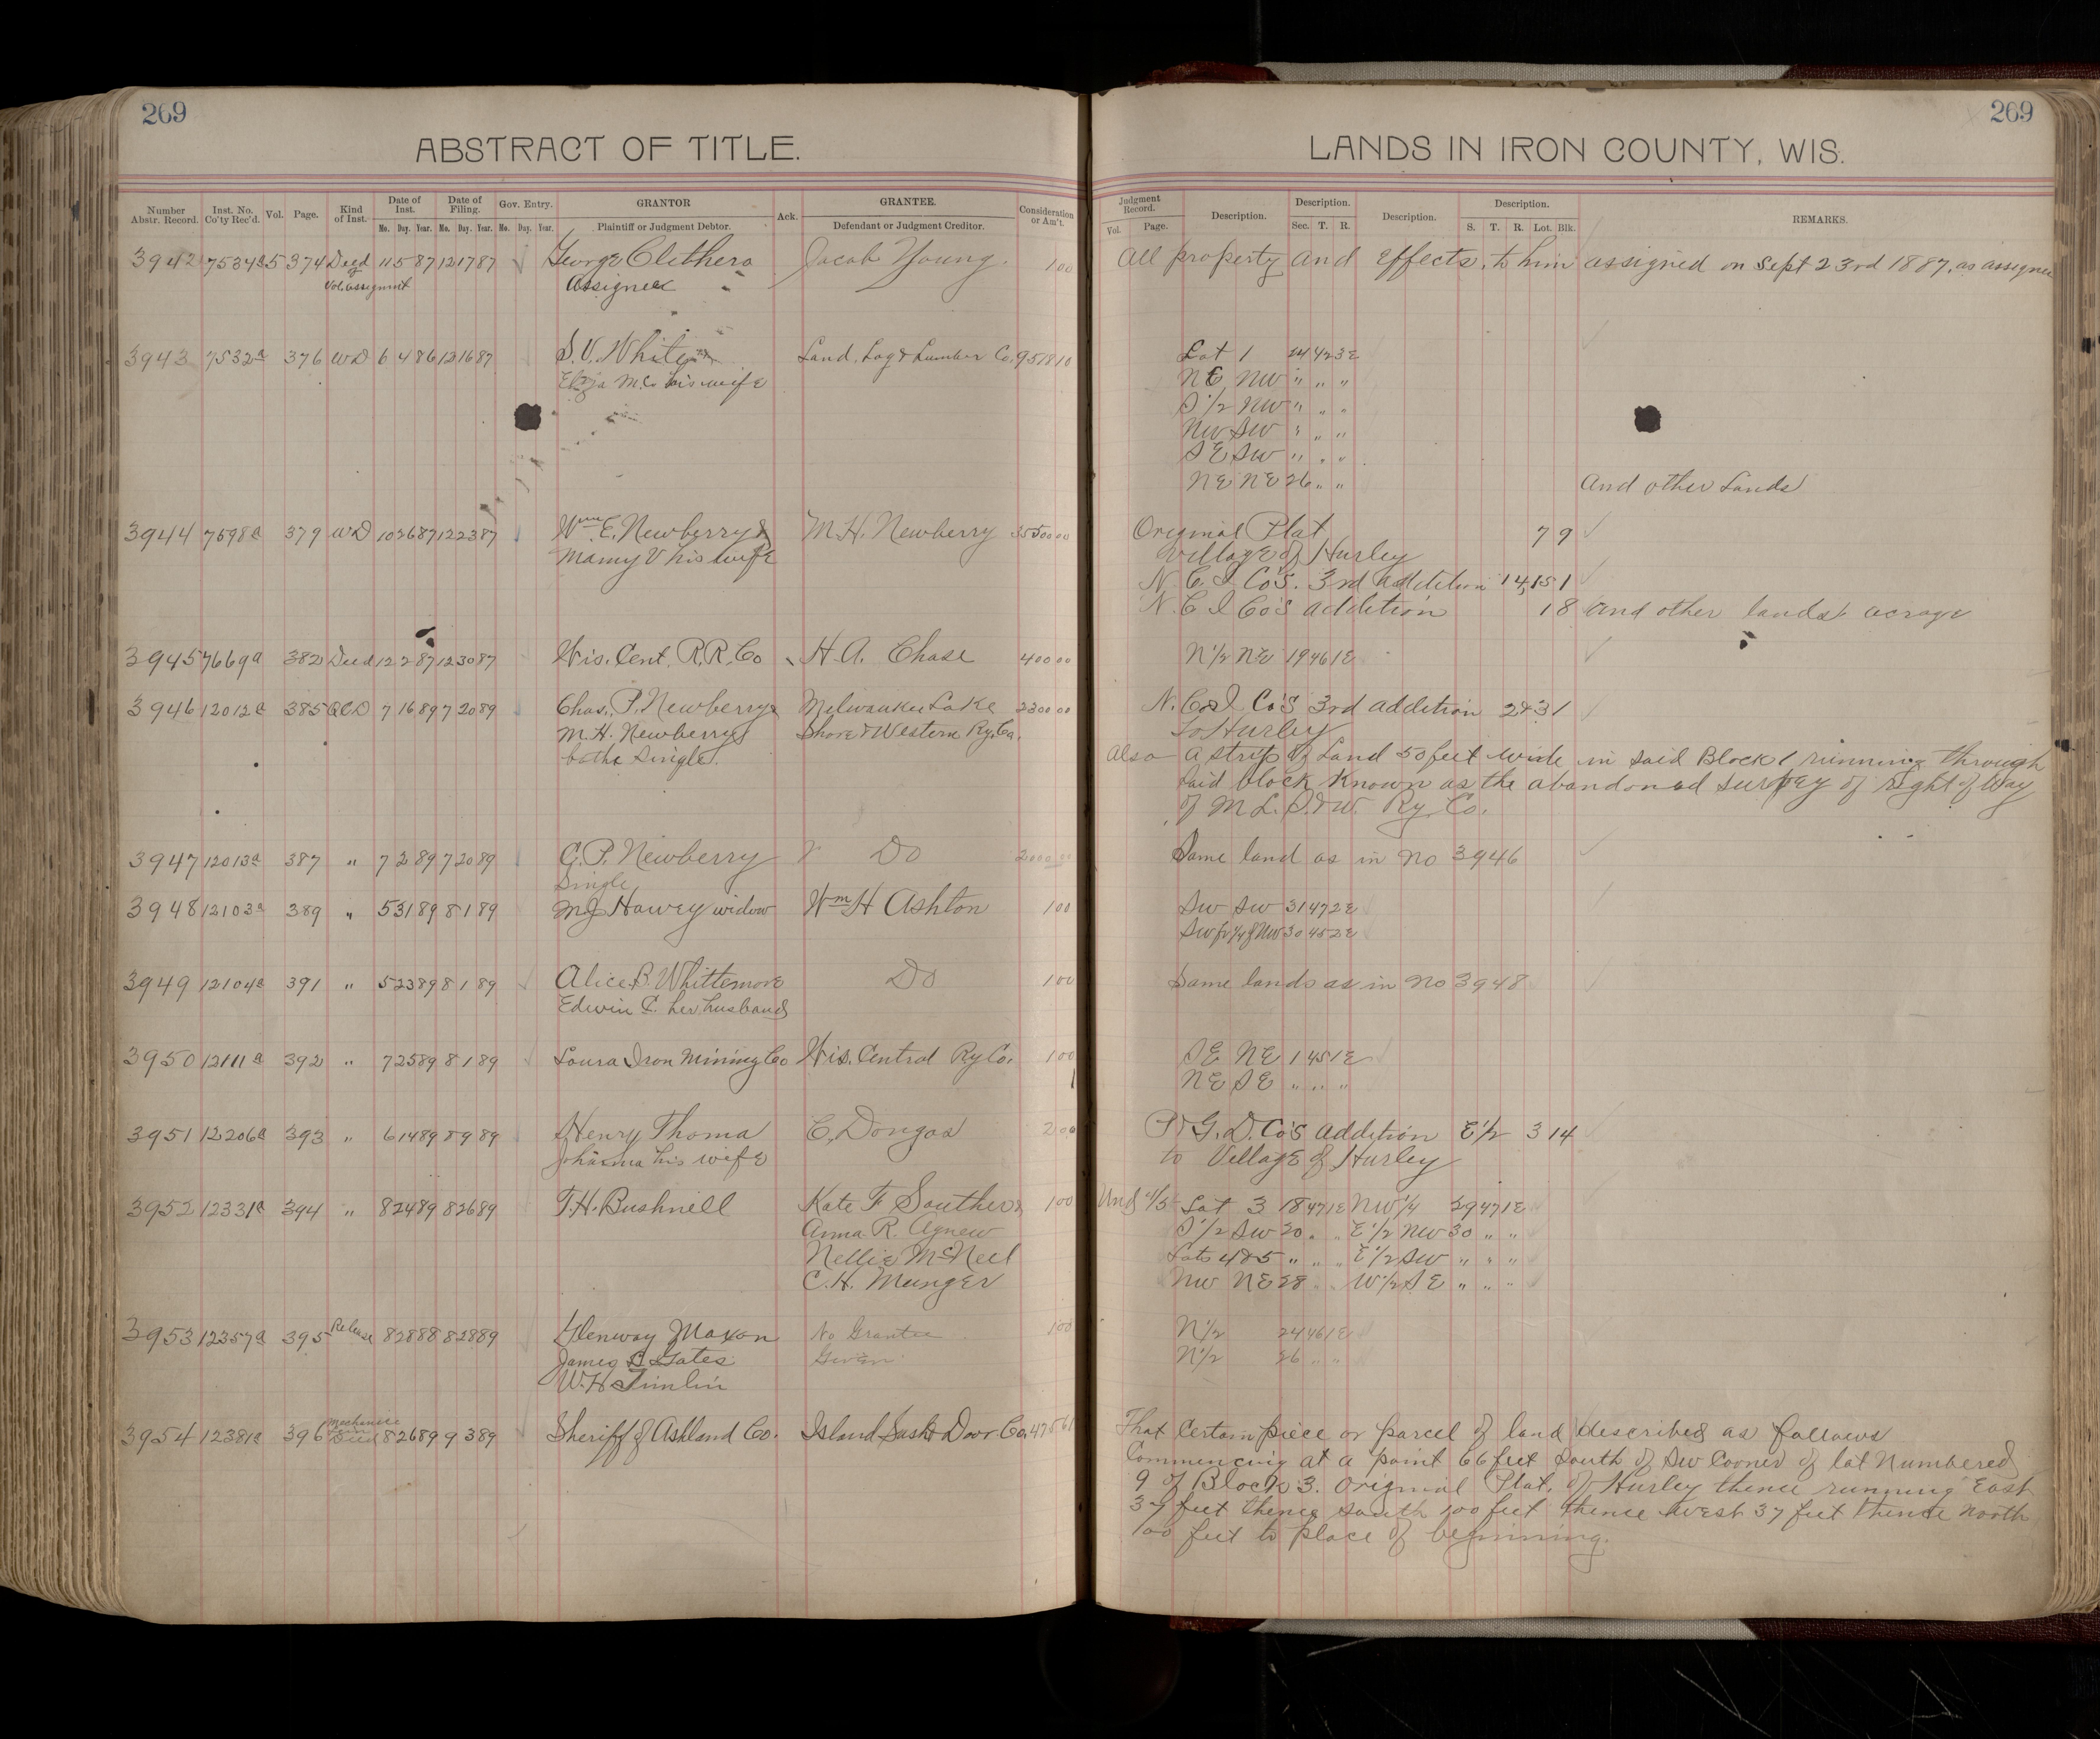 269
ABSTRACT OF TITLE.
Number Abstr. Record. Inst. No. Co'ty Rec'd. Vol. Page. Kind of Inst. Date of Inst. Date of Filing. Gov. Entry. GRANTOR Ack. GRANTEE. Consideration or Am't.
Mo. Day. Year. Mo. Day. Year. Mo. Day. Year. Plaintiff or Judgment Debtor. Defendant or Judgment Creditor.
3942 7534a 5 374 Deed 11 5 87 12 17 87 George Clithero Jacob Young. 1 00
of Vol. assignmt Assignee
3943 7532a 376 WD 6 4 86 12 16 87 S. V. White & Land, Log & Lumber Co. 9518 10
Eliza M. C. his wife
3944 7598a 379 WD 10 26 87 12 23 87 Wm E. Newberry & M. H. Newberry 35500 00
Mamy V his wife
3945 7669a 382 Deed 12 2 87 12 30 87 Wis. Cent. R.R. Co H. A. Chase 400 00
3946 12012a 385 QCD 7 16 89 7 20 89 Chas. P. Newberry & Milwaukee Lake 2300 00
M. H. Newberry Shore & Western Ry. Co.
both single.
3947 12013a 387 " 7 2 89 7 20 89 C. P. Newberry Do 2000 00
Single
3948 12103a 389 " 5 31 89 8 1 89 M J Hawey widow Wm H Ashton 1 00
3949 12104a 391 " 5 23 89 8 1 89 Alice B. Whittemore Do 1 00
Edwin C. her husband
3950 12111a 392 " 7 25 89 8 1 89 Loura Iron Mining Co Wis. Central Ry Co. 1 00
3951 12206a 393 " 6 14 89 8 9 89 Henry Thoma C. Dongas 2 00
Johanna his wife
3952 12331a 394 " 8 24 89 8 26 89 T. H. Bushnell Kate F Souther & 1 00
Anna R. Agnew
Nellie McNeil
C. H. Munger
3953 12357a 395 Release 8 28 88 8 28 89 Glenway Maxon No Grantee 1 00
James L Gates Given
W. H Timlin
3954 12381a 396 Mechanic Lien Deed 8 26 89 9 3 89 Sheriff of Ashland Co. Island Sash & Door Co. 475 61
269
LANDS IN IRON COUNTY, WIS.
Judgment Record. Description. Description. Description. Description. REMARKS.
Vol. Page. Sec. T. R. S. T. R. Lot. Blk.
All property and effects, to him assigned on Sept 23rd 1887, as assignee
Lot 1 24 42 3E
NE NW " " "
S 1/2 NW " " "
NW SW " " "
SE SW " " "
NE NE 26 " " And other Lands
Original Plat 7 9
Village of Hurley
N. C. I Co's. 3rd addition 14,15 1
N. C I Co's addition 18 and other lands acrage
N 1/2 NE 19 46 1E
N. C & I Co's 3rd addition 2&3 1
To Hurley
Also A strip of Land 50 feet wide in said Block 1 running through
Said block known as the abandoned survey of right of Way
of M L. S. & W. Ry. Co.
Same land as in No 3946
SW SW 31 47 2E
SW fr 1/4 of NW 30 45 2E
Same lands as in No 3948
SE NE 1 45 1E
NE SE " " "
P & G. D. Co's addition E 1/2 3 14
to Village of Hurley
Und 4/5 Lot 3 18 47 1E NW 1/4 29 47 1E
S 1/2 SW 20 " " E 1/2 NW 30 " "
Lots 4&5 " " " E 1/2 SW " " "
NW NE 28 " " W 1/2 SE " " "
N 1/2 24 46 1E
N 1/2 26 " "
That Certain piece or parcel of land described as follows
Commencing at a point 66 feet South of SW Corner of lot Numbered
9 of Block 3. Original Plat, of Hurley thence running East
37 feet thence south 100 feet thence West 37 feet thence North
100 feet to place of beginning.